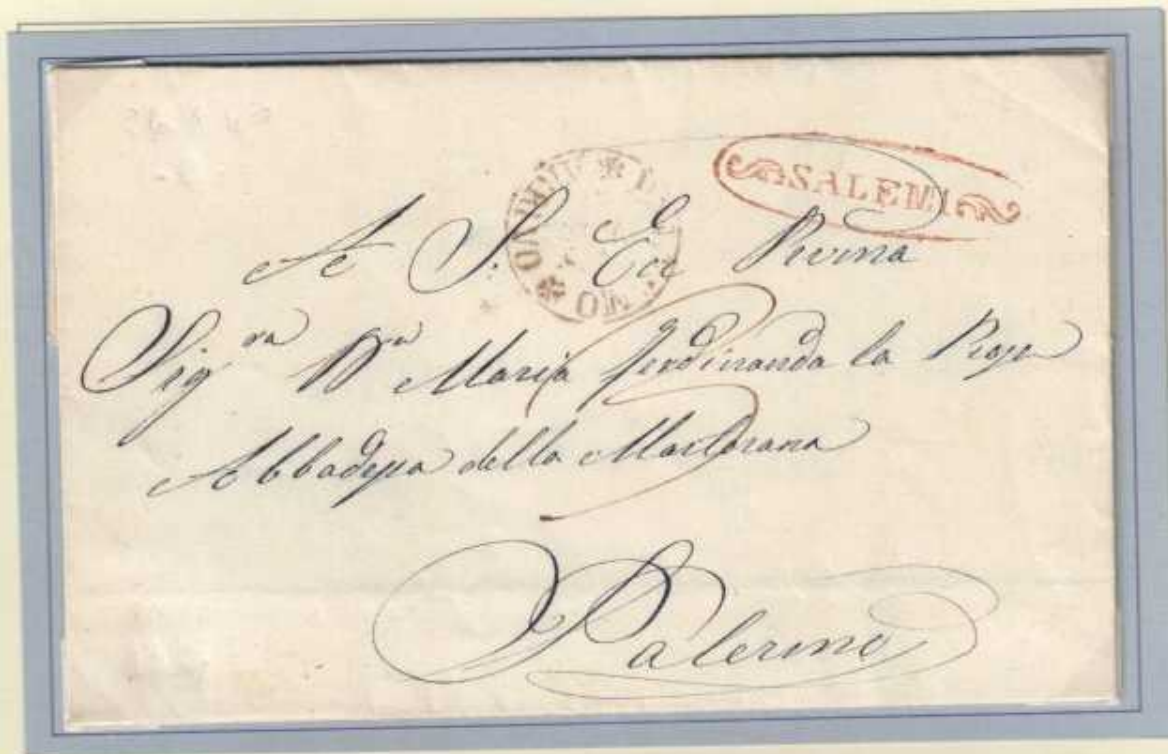 SALEMI
A S. Ecc Revma
Sigra Dra Maria Ferdinanda la
Abbadessa della Martorana
Palermo